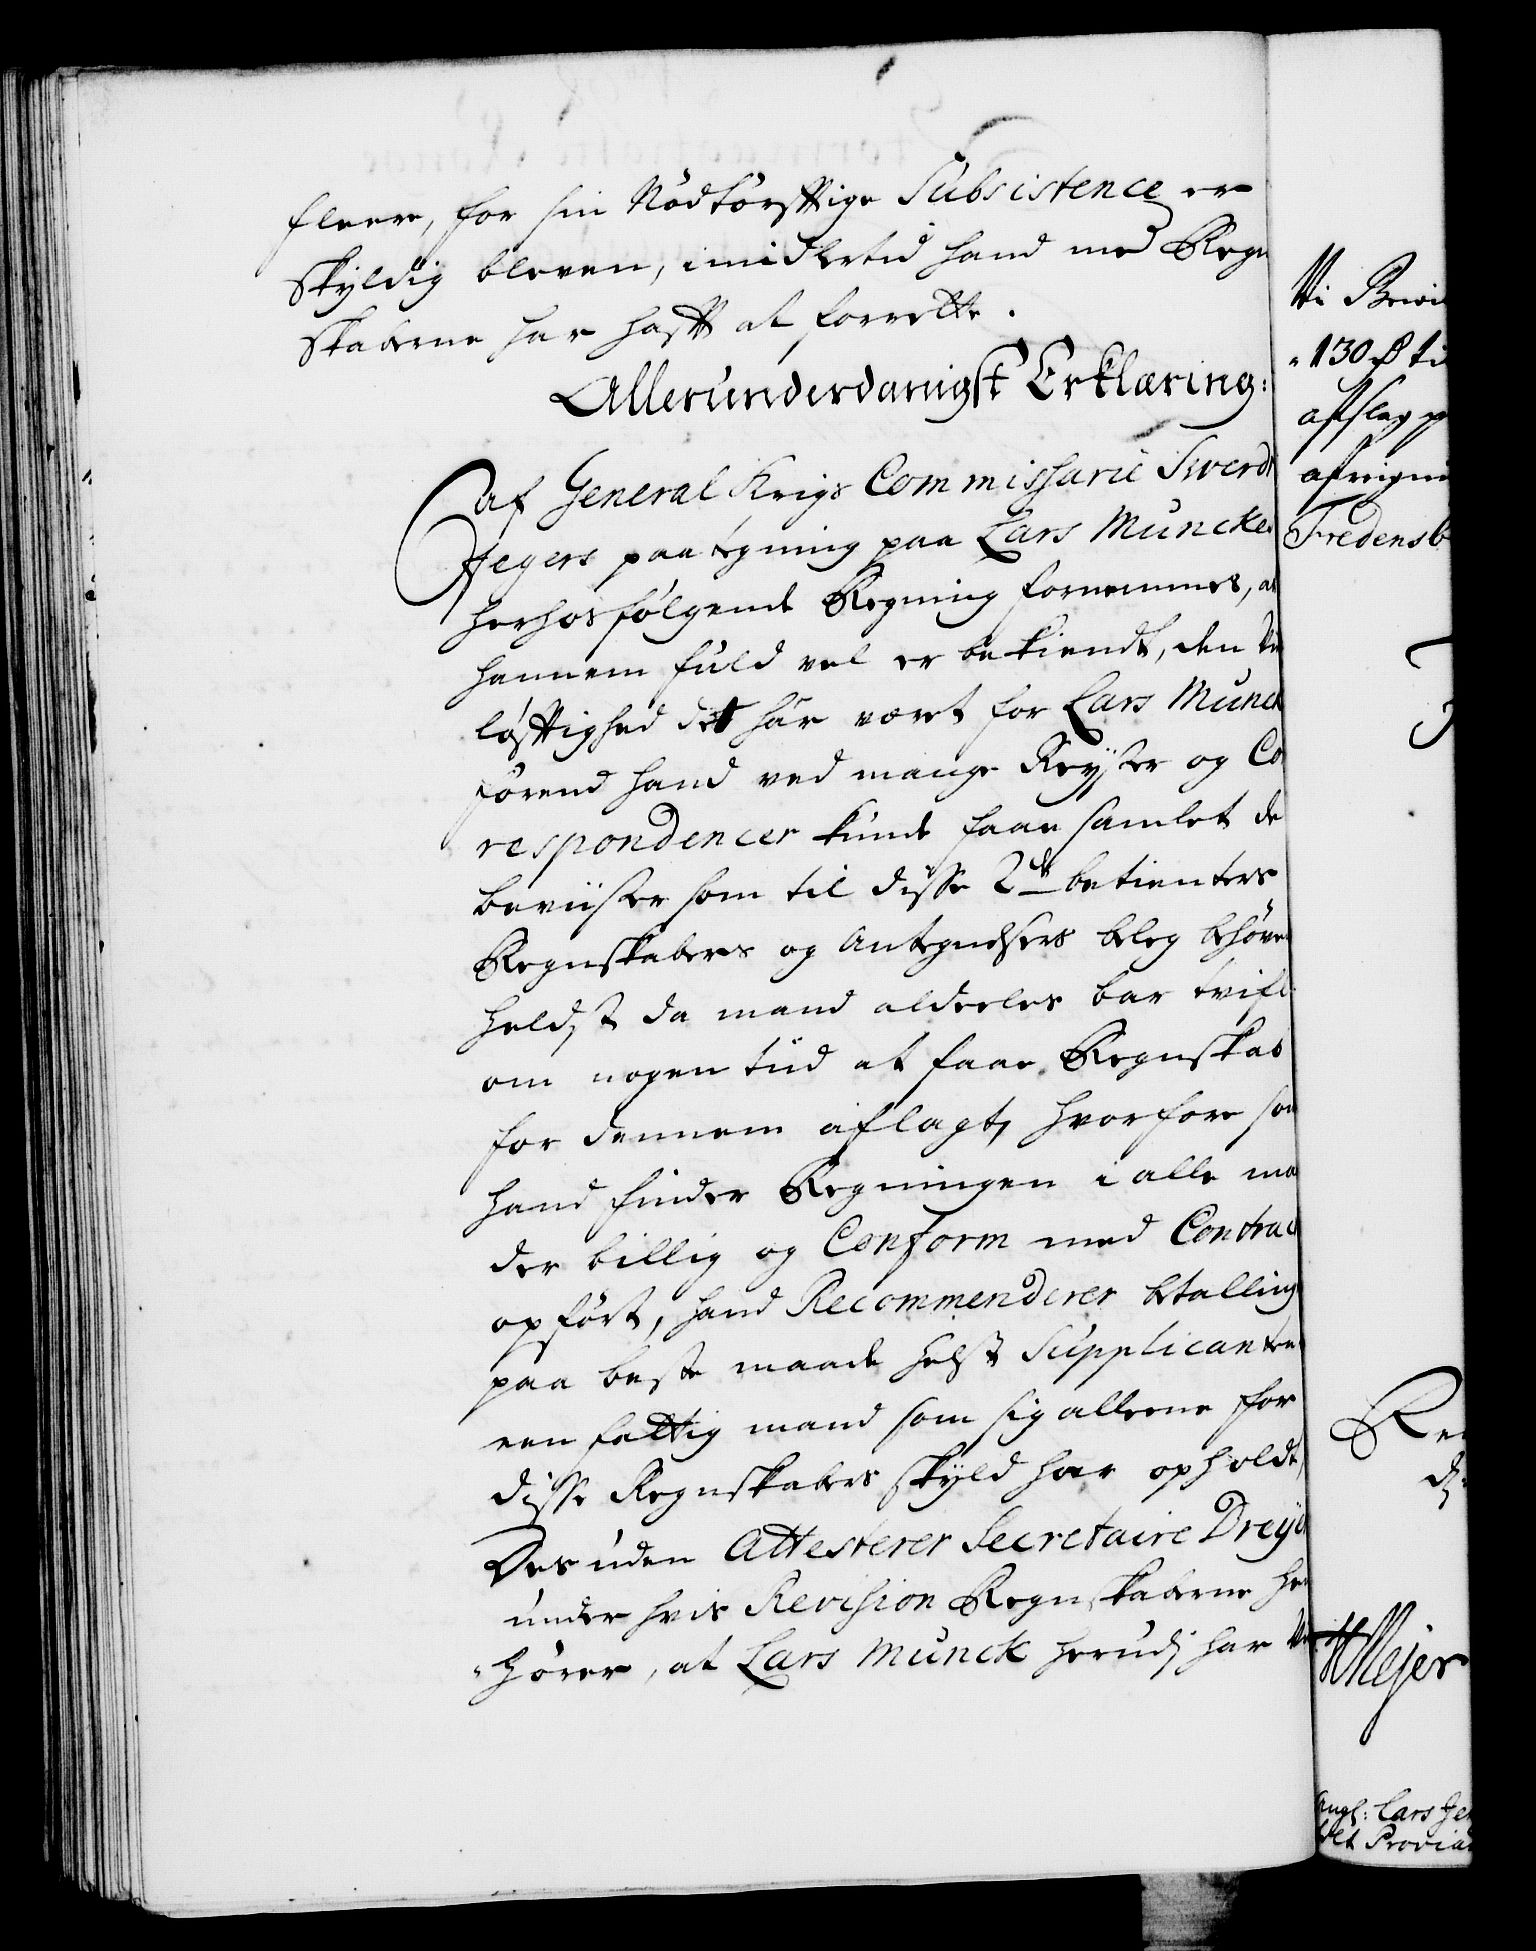 fleere, for sin Nödtörfftige Subsistence er
skyldig bleven, imidlertid hand med Regn
skaberne har hafft at forrette.
Allerunderdanigst Erklæring:
af General Krigs Commissarie Sverdt
fegers paategning paa Lars Muncke
herhosfølgende Regning fornemmes, at
hannem fuld vel er bekiendt, den
løfftighed det har været for Lars Munck
förend hand ved mange Reyser og Co
respondencer kunde faae samlet de
beviiser som til disse 2de betienters
Regnskabers og Antegnelsers beleg behöve
heldst da mand alderles bar tvifl
om nogen tiid at faae Regnskab
for dennem aflagt, hvorfore som
hand finder Regningen i alle maa
der billig og Conform med Contrac
opfört, hand Recommenderer betalling
paa beste maade helst Supplicanten
een fattig mand som sig alleene for
disse Regnskabers skyld har opholdt,
Des uden Attesterer Secretaire Dreye
under hvis Revision Regnskaberne hen
hörer, at Lars Munck herudj har
Vi
130 rd ti
afslag p
afregni
Fredensb
Re
HMejer
Angl: Lars Je
Provia